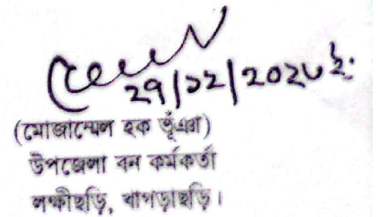 ২৭/১২/২০২৮ ইং
(মোজাম্মেল হক ভূঁঞা)
উপজেলা বন কর্মকর্তা
লক্ষীছড়ি, খাগড়াছড়ি।